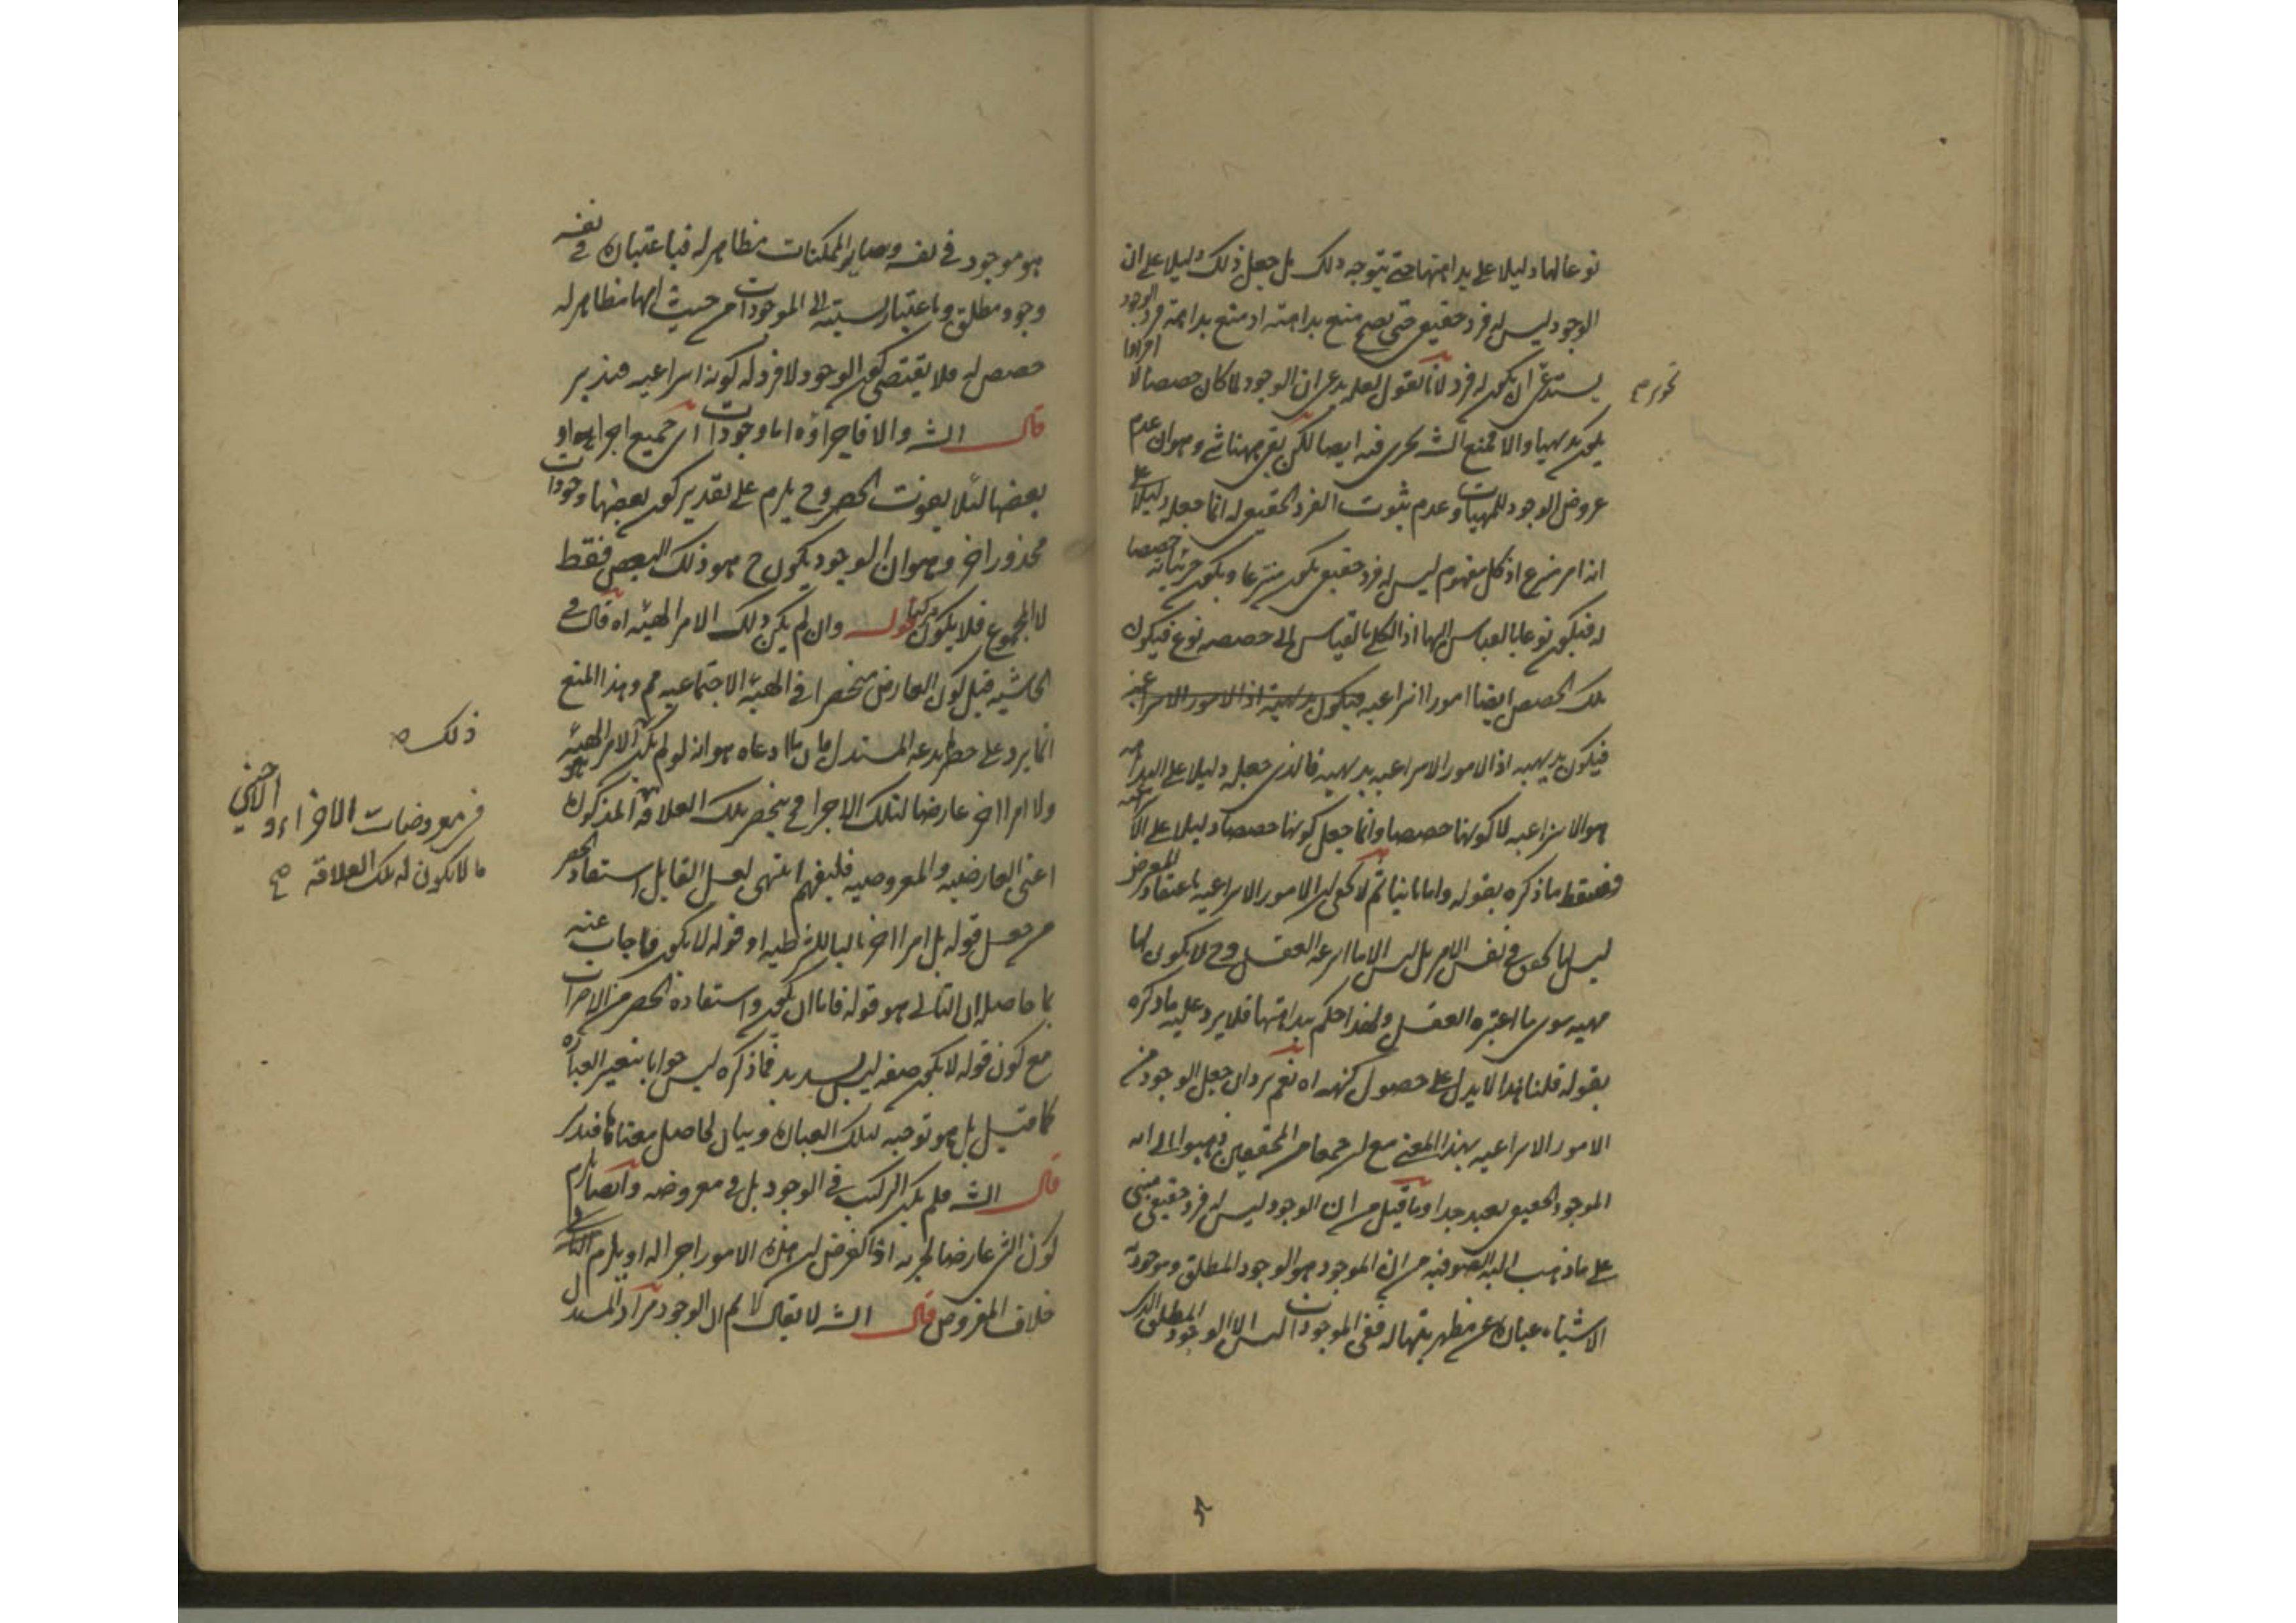 نوعا لها دليلا على بداهتها حتى يتوجه ذلك بل جعل ذلك دليلا على ان
الوجود ليس له فرد حقيقي حتى يصح منع بداهته او منع بداهة فرد الوجود
يستدعي ان يكون له فرد لانا نقول لعله يدعي ان الوجود لما كان حصصا لا افرادا
يكون بديهيا والا فمنع الش يجري فيه ايضا لكن بقي ههنا شئ وهو ان عدم
عروض الوجود للمهيات وعدم ثبوت الفرد الحقيقي له انما جعله دليلا على
انه امر منتزع اذ كل مفهوم ليس له فرد حقيقي يكون منتزعا ويكون جزئياته حصصا
له فيكون نوعا بالقياس اليها اذ الكلي بالقياس الى حصصه نوع فيكون
تلك الحصص ايضا امورا انتزاعيه فيكون بديهية اذ الامور الانتزاعية
فيكون بديهيه اذ الامور الانتزاعيه بديهيه فالذي جعله دليلا على البداهة
هو الانتزاعيه لا كونها حصصا وانما جعل كونها حصصا دليلا على
فسقط ما ذكره بقوله واما ثانيا ثم لا يخفى ان الامور الانتزاعيه باعتقاد المعرض
ليس لها تحقق في نفس الامر بل ليس الا ما انتزعه العقل وح لا يكون لها
مهيه سوى ما اعتبره العقل ولهذا حكم ببداهتها فلا يرد عليه ما ذكره
بقوله قلنا هذا لا يدل على حصول كنهه اه نعم يرد ان جعل الوجود من
الامور الانتزاعيه بهذا المعنى مع ان جمعا من المحققين ذهبوا الى انه
الموجود الحقيقي بعيد جدا وما قيل من ان الوجود ليس له فرد حقيقي مبني
على ما ذهب اليه الصوفيه من ان الموجود هو الوجود المطلق وموجودية
الاشياء عبارة عن مظهريتها له ففي الموجودات ليس الا الوجود المطلق الذي
تحرير م
هو موجود في نفسه وساير الممكنات مظاهر له فباعتباره في نفسه
وجود مطلق وباعتبار نسبته الى الموجودات من حيث انها مظاهر له
حصص له فلا يقتضي كون الوجود لا فرد له كونه انتزاعيه فتدبر
قال الش والا فاجزاؤه اما وجودات اي جميع اجزايه او
بعضها لئلا يفوت الحصر وح يلزم على تقدير كون بعضها وجودات
محذور اخر وهو ان الوجود يكون ح هو ذلك البعض فقط
لا المجموع فلا يكون مركبا قوله وان لم يكن ذلك الامر الهيئه اه قال في
الحاشيه قيل كون العارض منحصرا في الهيئة الاجتماعيه مم وهذا المنع
انما يرد على مدعى المستدل فان ما ادعاه هو انه لو لم يكن الامر الهيئه
ولا امرا اخر عارضا لتلك الاجزا في ينحصر تلك العلاقه المذكوره
اعني العارضيه والمعروضيه فليفهم انتهى لعل القايل استفاد الحصر
من جعل قوله بل امرا اخر تاليا للشرطيه او قوله لا يكون فاجاب عنه
بما حاصله ان التالي هو قوله فاما ان يكون واستفاده الحصر من
مع كون قوله لا يكون صفه ليس بسديد فما ذكره ليس جوابا بتغيير العبارة
كما قيل بل هو توجيه لتلك العبارة وبيان لحاصل معناها فتدبر
قال الش فلم يكن التركيب في الوجود بل في معروضه وايضا يلزم
كون الش عارضا لجزئه اذ المفروض ان هذه الامور اجزا له او يلزم
خلاف المفروض قال الش لا يقال لا نم ان الوجود مراد المستدل
ذلك
من معروضات الاجزاء والاجنبي
ما لا يكون له تلك العلاقة صح